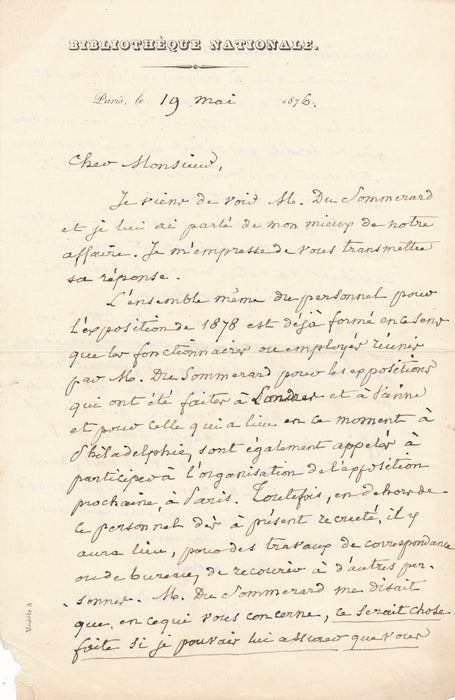 BIBLIOTHÈQUE NATIONALE.
Paris, le 19 mai 1876.
Cher Monsieur,
Je viens de voir M. Du Sommerard
et je lui ai parlé de mon mieux de notre
affaire. Je m'empresse de vous transmettre
sa réponse.
L'ensemble même du personnel pour
l'exposition de 1878 est déjà formé en ce sens
que les fonctionnaires ou employés réunis
par M. Du Sommerard pour les expositions
qui ont été faites à Londres et à Vienne
et pour celle qui a lieu en ce moment à
Philadelphie, sont également appelés à
participer à l'organisation de l'exposition
prochaine, à Paris. Toutefois, en dehors de
ce personnel dès à présent recruté, il y
aura lieu, pour des travaux de correspondance
ou de bureau, de recourir à d'autres per-
sonnes. M. Du Sommerard me disait
que, en ce qui vous concerne, ce serait chose
faite si je pouvais lui assurer que vous
Modèle A